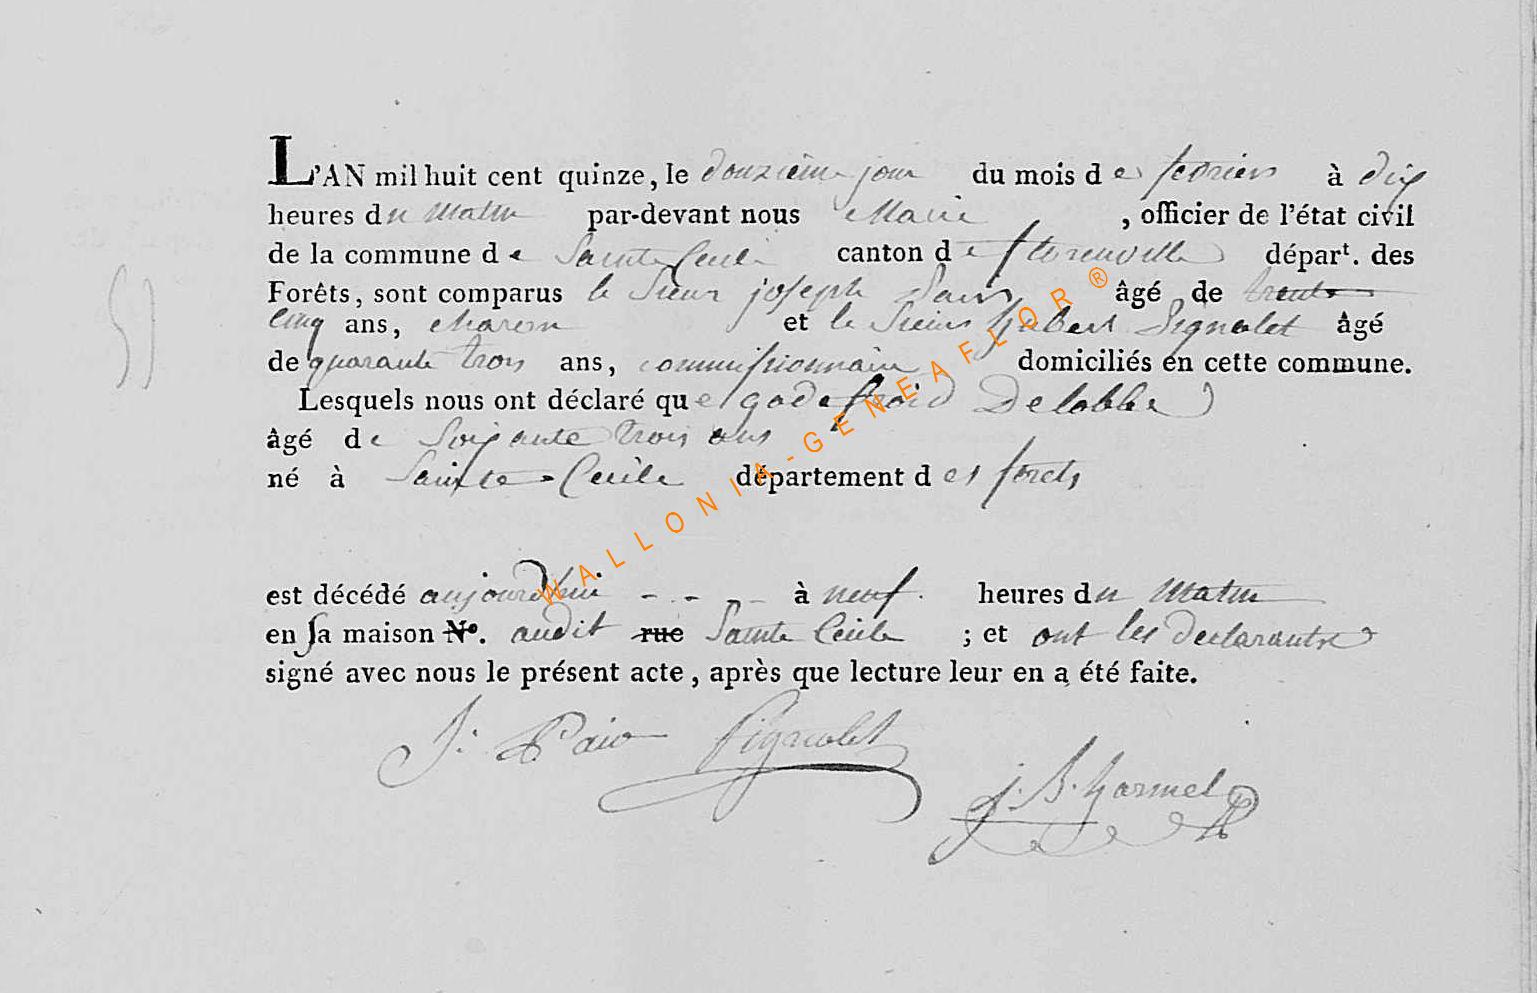 L'AN mil huit cent quinze, le douzième jour du mois de fevrier à dix
heures du matin par-devant nous Maire, officier de l'état civil
de la commune de Sainte Cecile canton de florenville départ. des
Forêts, sont comparus le Sieur joseph Pairo âgé de trente
cinq ans, charon et le Sieur hubert Pignolet âgé
de quarante trois ans, commissionnaire domiciliés en cette commune.
Lesquels nous ont déclaré que godefroid Delobbe
âgé de Soixante trois ans
né à Sainte-Cecile département des forets
est décédé aujourdhui - - - - à neuf heures du matin
en sa maison N°. audit rue Sainte Cecile ; et ont les declarants
signé avec nous le présent acte, après que lecture leur en a été faite.
J: Pairo Pignolet
j. B. harmel
WALLONIA-GENEAFLOR®